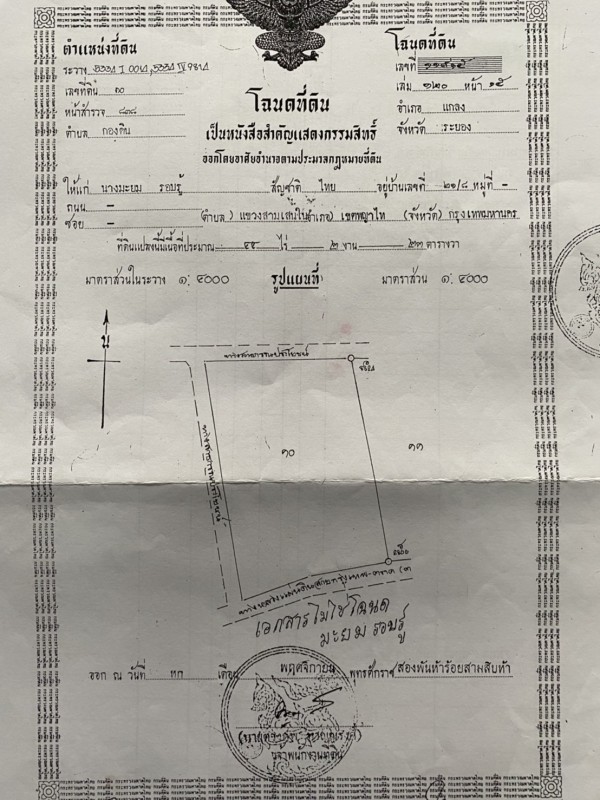 ตำแหน่งที่ดิน
ระวาง
เลขที่ดิน ๑๐
หน้าสำรวจ
ตำบล กองดิน
โฉนดที่ดิน
เลขที่
เล่ม ๑๒๐ หน้า ๑๕
อำเภอ แกลง
จังหวัด ระยอง
โฉนดที่ดิน
เป็นหนังสือสำคัญแสดงกรรมสิทธิ์
ออกโดยอาศัยอำนาจตามประมวลกฎหมายที่ดิน
ให้แก่ นางมะยม รอบรู้ สัญชาติ ไทย อยู่บ้านเลขที่ ๒๑/๘ หมู่ที่ -
ถนน -
ซอย - (ตำบล) แขวงสามเสนใน (อำเภอ) เขตพญาไท (จังหวัด) กรุงเทพมหานคร
ที่ดินแปลงนี้มีเนื้อที่ประมาณ ๔๕ ไร่ ๒ งาน ๒๓ ตารางวา
มาตราส่วนในระวาง ๑: ๔๐๐๐
รูปแผนที่
มาตราส่วน ๑: ๔๐๐๐
น
ทางสาธารณประโยชน์
ทางสาธารณประโยชน์
๑๐
๑๑
เอกสารไม่ใช่โฉนด
มะยม รอบรู้
ออก ณ วันที่ หก เดือน พฤศจิกายน พุทธศักราช สองพันห้าร้อยสามสิบห้า
เจ้าพนักงานที่ดิน